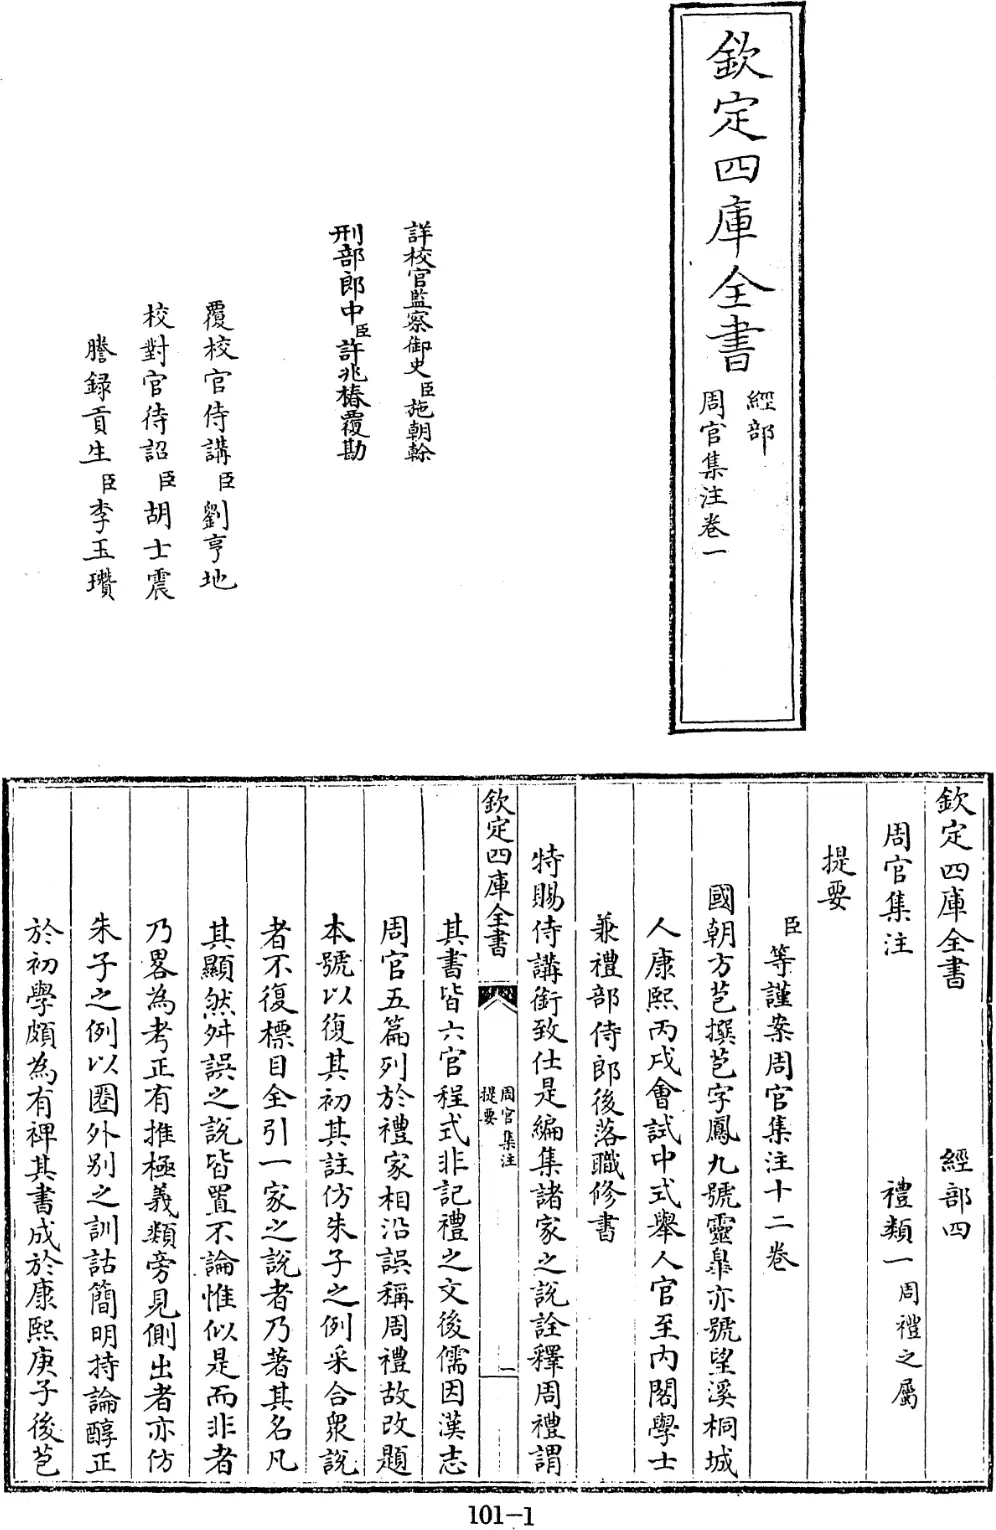 欽定四庫全書
經部
周官集注卷一
詳校官監察御史臣施朝榦
刑部郎中臣許兆椿覆勘
覆校官侍講臣劉亨地
校對官待詔臣胡士震
謄録貢生臣李玉瓚
欽定四庫全書 經部四
周官集注 禮類一周禮之屬
提要
臣等謹案周官集注十二卷
國朝方苞撰苞字鳳九號靈臯亦號望溪桐城
人康熙丙戌會試中式舉人官至内閣學士
兼禮部侍郎後落職修書
特賜侍講銜致仕是編集諸家之説詮釋周禮謂
欽定四庫全書
周官集注
提要
一
其書皆六官程式非記禮之文後儒因漢志
周官五篇列於禮家相沿誤稱周禮故改題
本號以復其初其註仿朱子之例采合衆説
者不復標目全引一家之説者乃著其名凡
其顯然舛誤之説皆置不論惟似是而非者
乃畧為考正有推極義類旁見側出者亦仿
朱子之例以圈外别之訓詁簡明持論醇正
於初學頗為有裨其書成於康熙庚子後苞
101-1